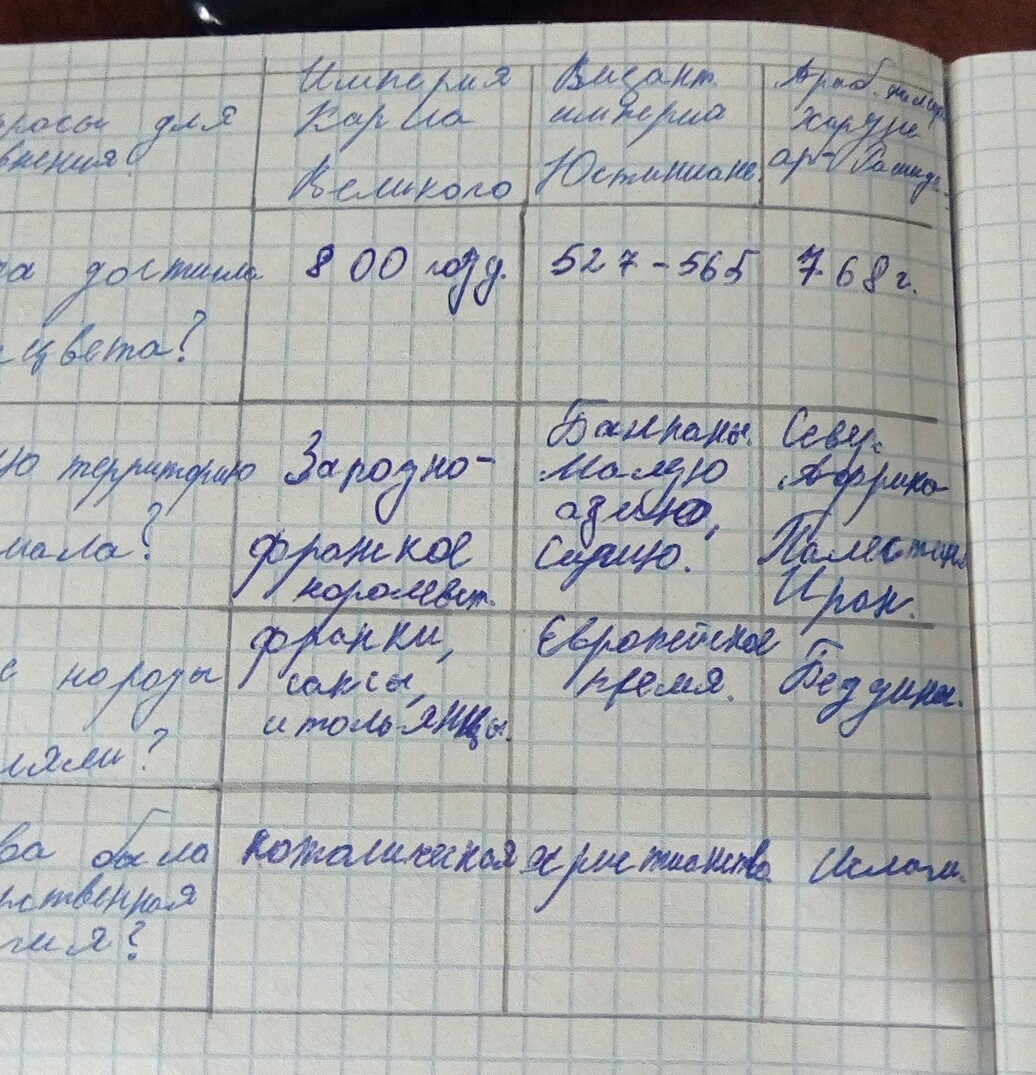 Империя
Карла
Великого
Визант.
империя
Юстиниане.
Араб.
Харуне
ар-Рашиде.
просы для
внения?
да достигла
сцвета?
800 году.
527-565
768г.
ую территорию
мала?
Западно-
франкое
королевст.
Балканы.
Малую
азию,
Сирию.
Север.
Африка
Палестина
Иран.
е народы
ляли?
франки,
саксы,
итольянцы.
Европейское
племя.
Бедуины.
ова была
рственная
гия?
католическая
христианство.
Ислам.